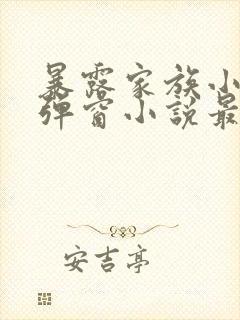 暴露家族小
弹窗小說最
安吉亭